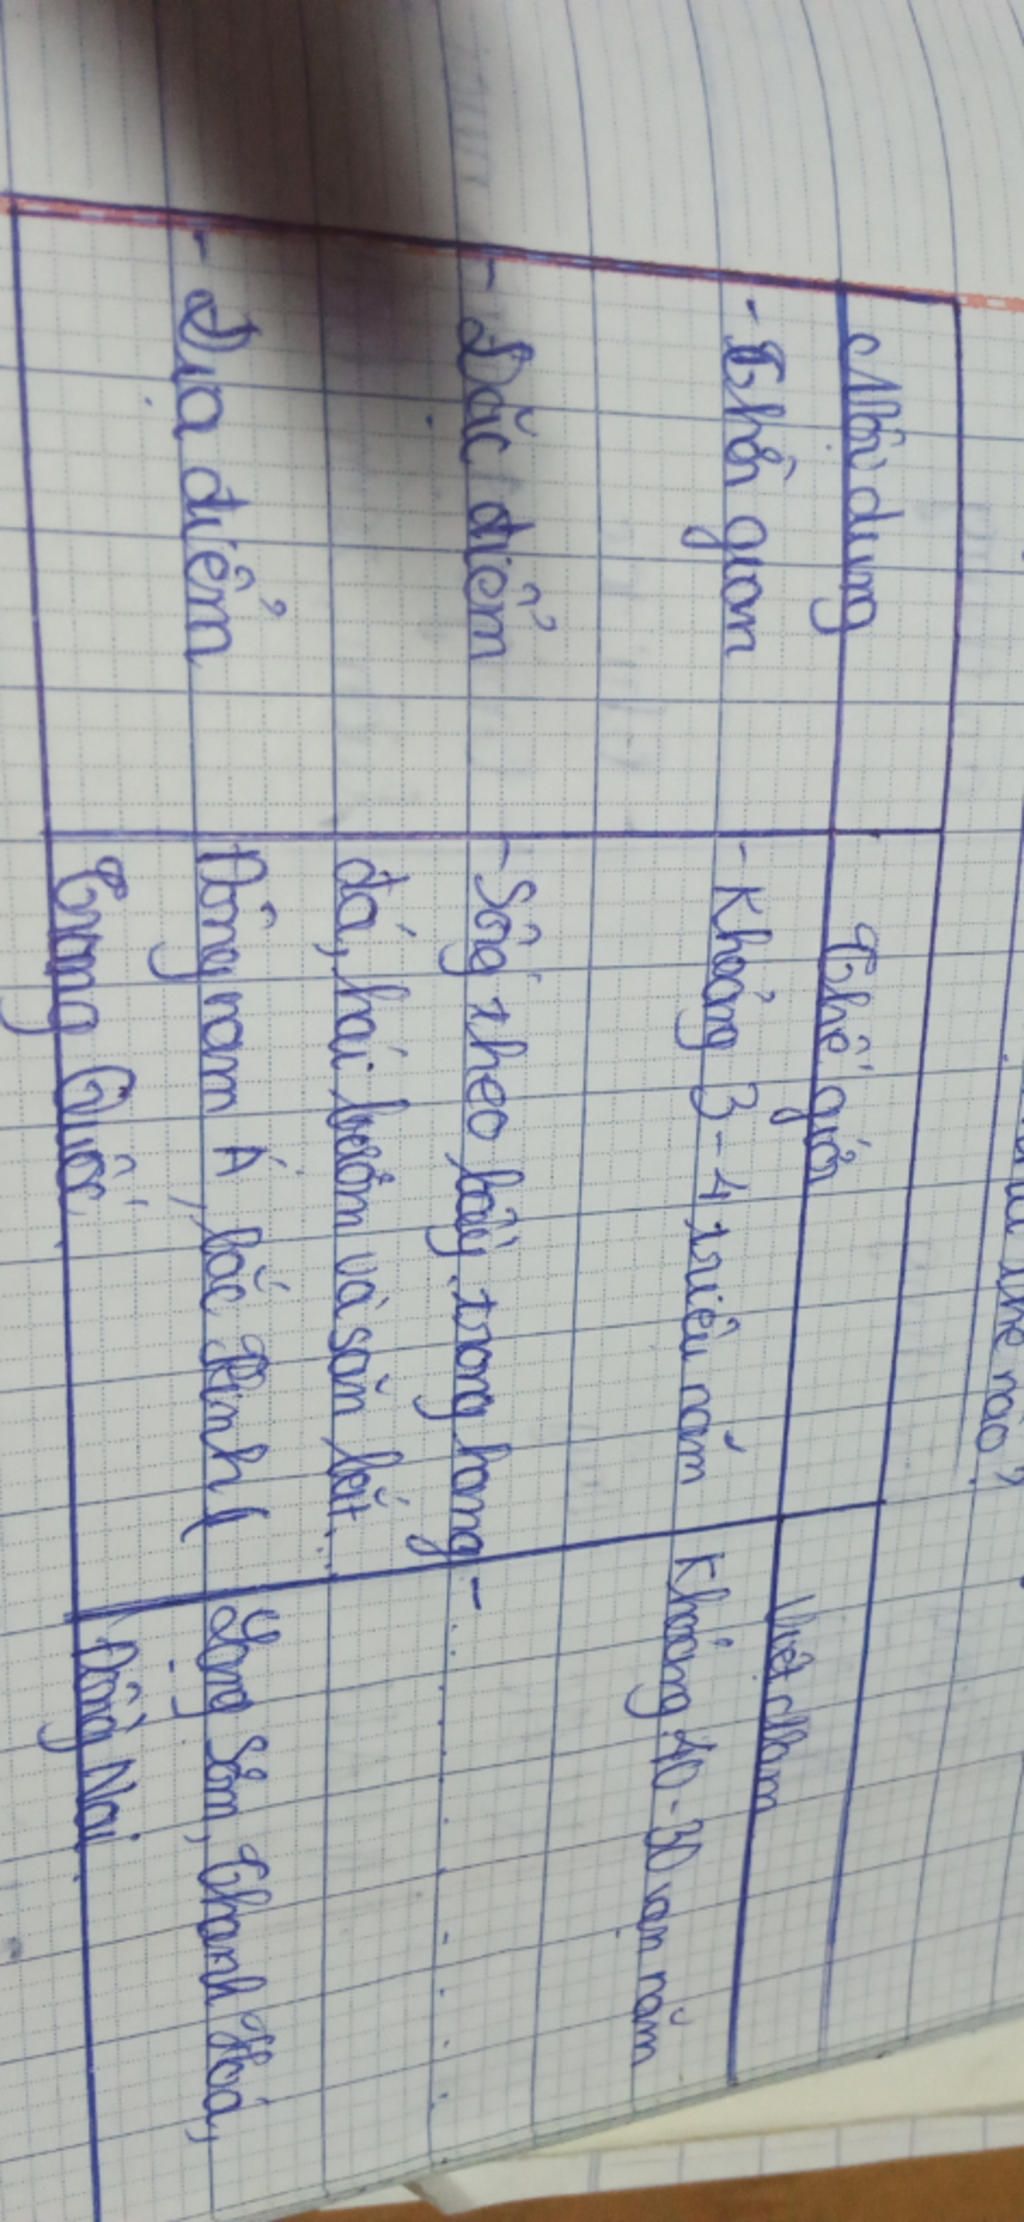 thế nào?
Nội dung Thế giới Việt Nam
- Thời gian - Khoảng 3-4 triệu năm Khoảng 40-30 vạn năm
- Đặc điểm - Sống theo bầy, trong hang - . . . . . . . . . .
đá, hái lượm và săn bắt...
- Địa điểm Đông nam Á, bắc Kinh ( Lạng Sơn, Thanh Hoá,
Trung Quốc. Đồng Nai